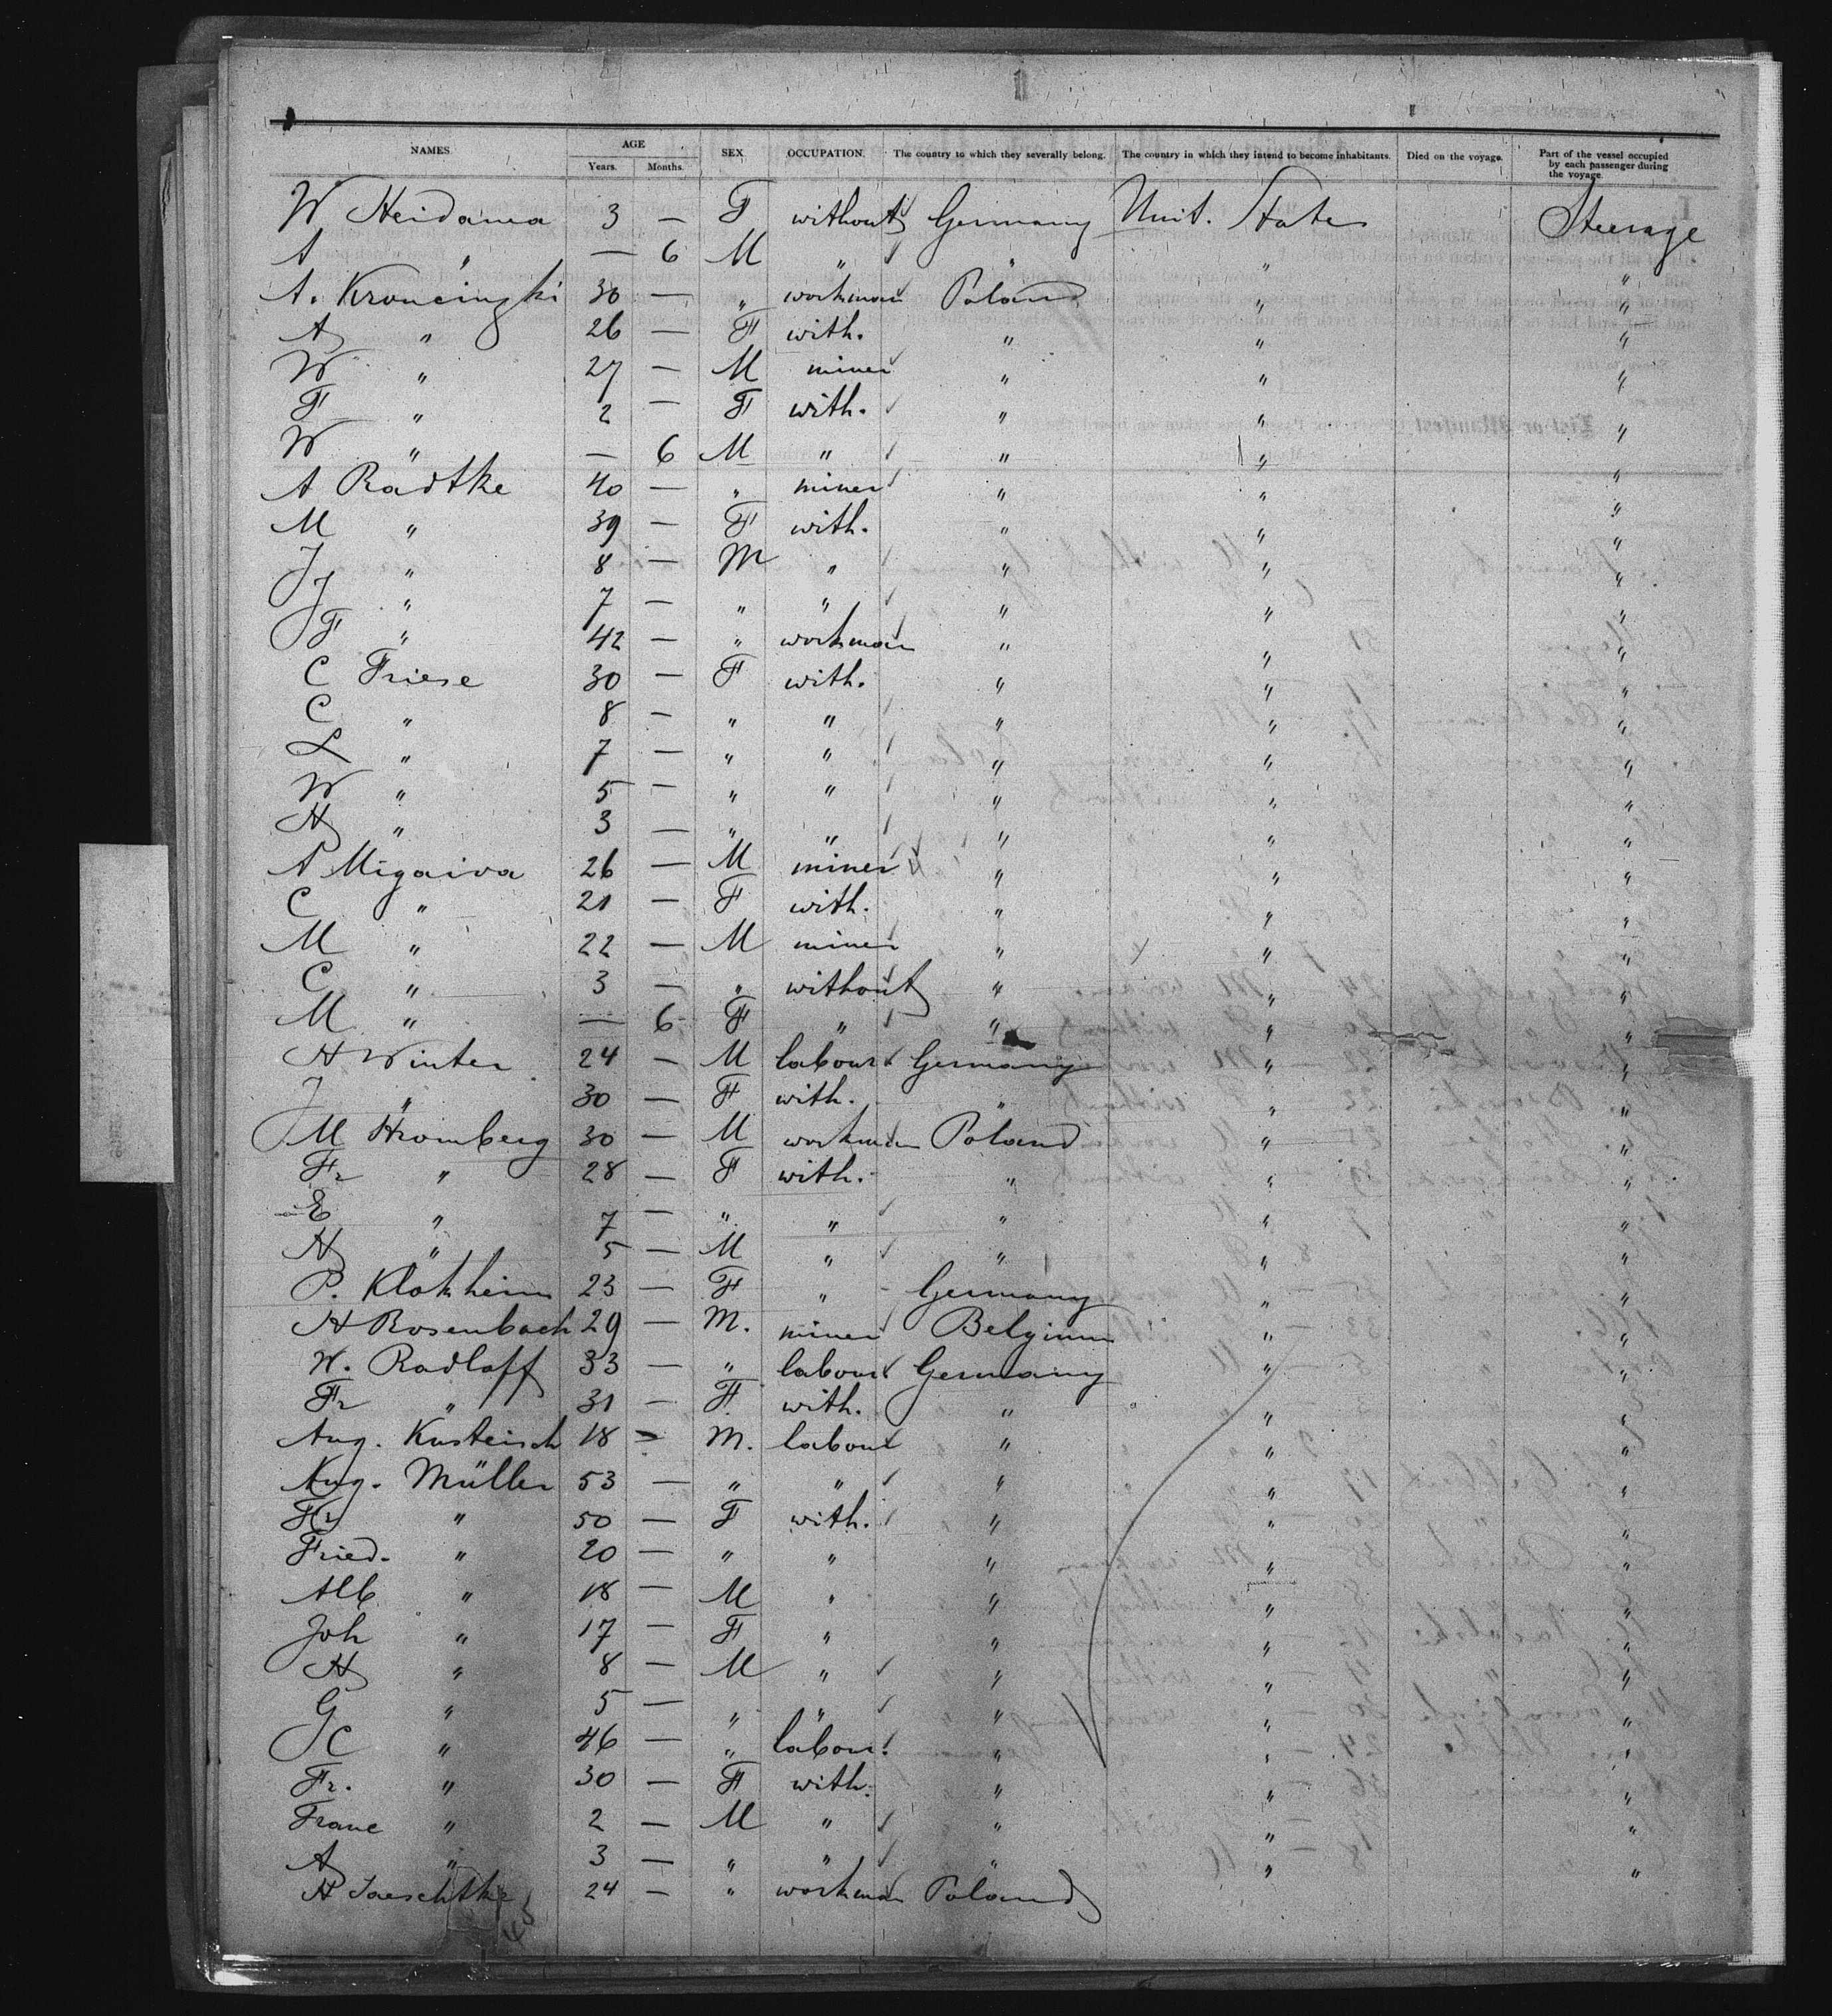 NAMES. AGE SEX OCCUPATION. The country to which they severally belong. The country in which they intend to become inhabitants. Died on the voyage. Part of the vessel occupied by each passenger during the voyage.
Years. Months.
W Heidama 3 — F without Germany Unit. States Steerage
A " — 6 M " " " "
A. 30 — " workman Poland " "
A " 26 — F with. " " "
W " 27 — M miner " " "
F " 2 — F with. " " "
W " — 6 M " " " "
A Radtke 40 — " miner " " "
M " 39 — F with. " " "
J " 8 — M " " " "
J " 7 — " " " " "
F " 42 — " workman " " "
C Friese 30 — F with. " " "
C " 8 — " " " " "
L " 7 — " " " " "
W " 5 — " " " " "
H " 3 — " " " " "
A Migaiva 26 — M miner " " "
C " 21 — F with. " " "
M " 22 — M miner " " "
C " 3 — " without " " "
M " — 6 F " " " "
H Winter 24 — M labour Germany " "
J " 30 — F with. " " "
M Stromberg 30 — M workman Poland " "
Fr " 28 — F with. " " "
E " 7 — " " " " "
H " 5 — M " " " "
P. Klokheim 23 — F " Germany " "
H Rosenbach 29 — M. miner Belgium " "
W. Radloff 33 — " labour Germany " "
Fr " 31 — F. with. " " "
Aug. Kusteisch 18 — M. labour " " "
Aug. Müller 53 — " " " " "
Fr " 50 — F with. " " "
Fried. " 20 — " " " " "
Alb " 18 — M " " " "
Joh " 17 — F " " " "
H " 8 — M " " " "
G " 5 — " " " " "
C " 46 — " labour. " " "
Fr. " 30 — F with. " " "
Franc " 2 — M " " " "
A " 3 — " " " " "
H Jaeschtke 24 — " workman Poland